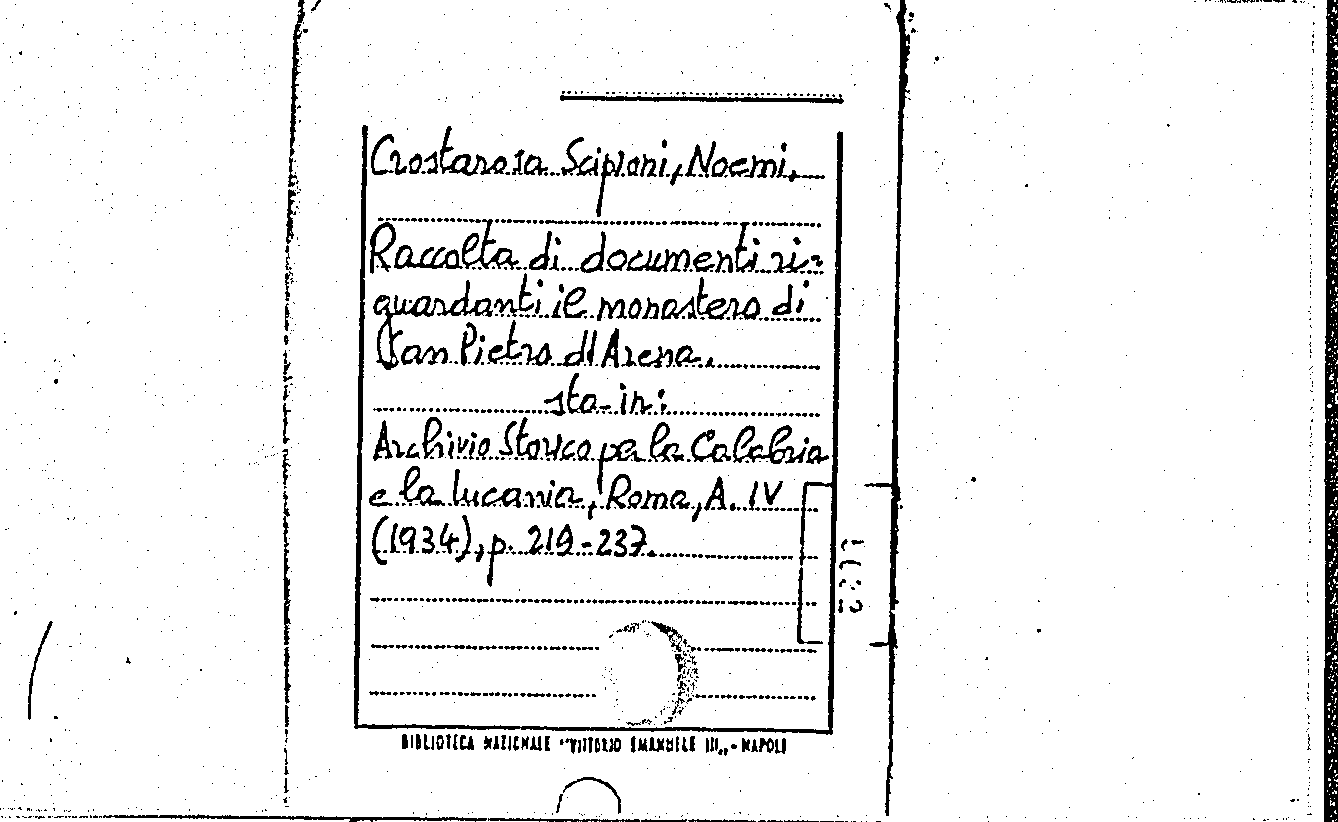 Crostarosa Scipioni, Noemi.
Raccolta di documenti ri=
guardanti il monastero di
San Pietro d'Arena.
sta in:
Archivio Storico per la Calabria
e la Lucania, Roma, A. IV
(1934), p. 219-237.
BIBLIOTECA NAZIONALE "VITTORIO EMANUELE III„ - NAPOLI